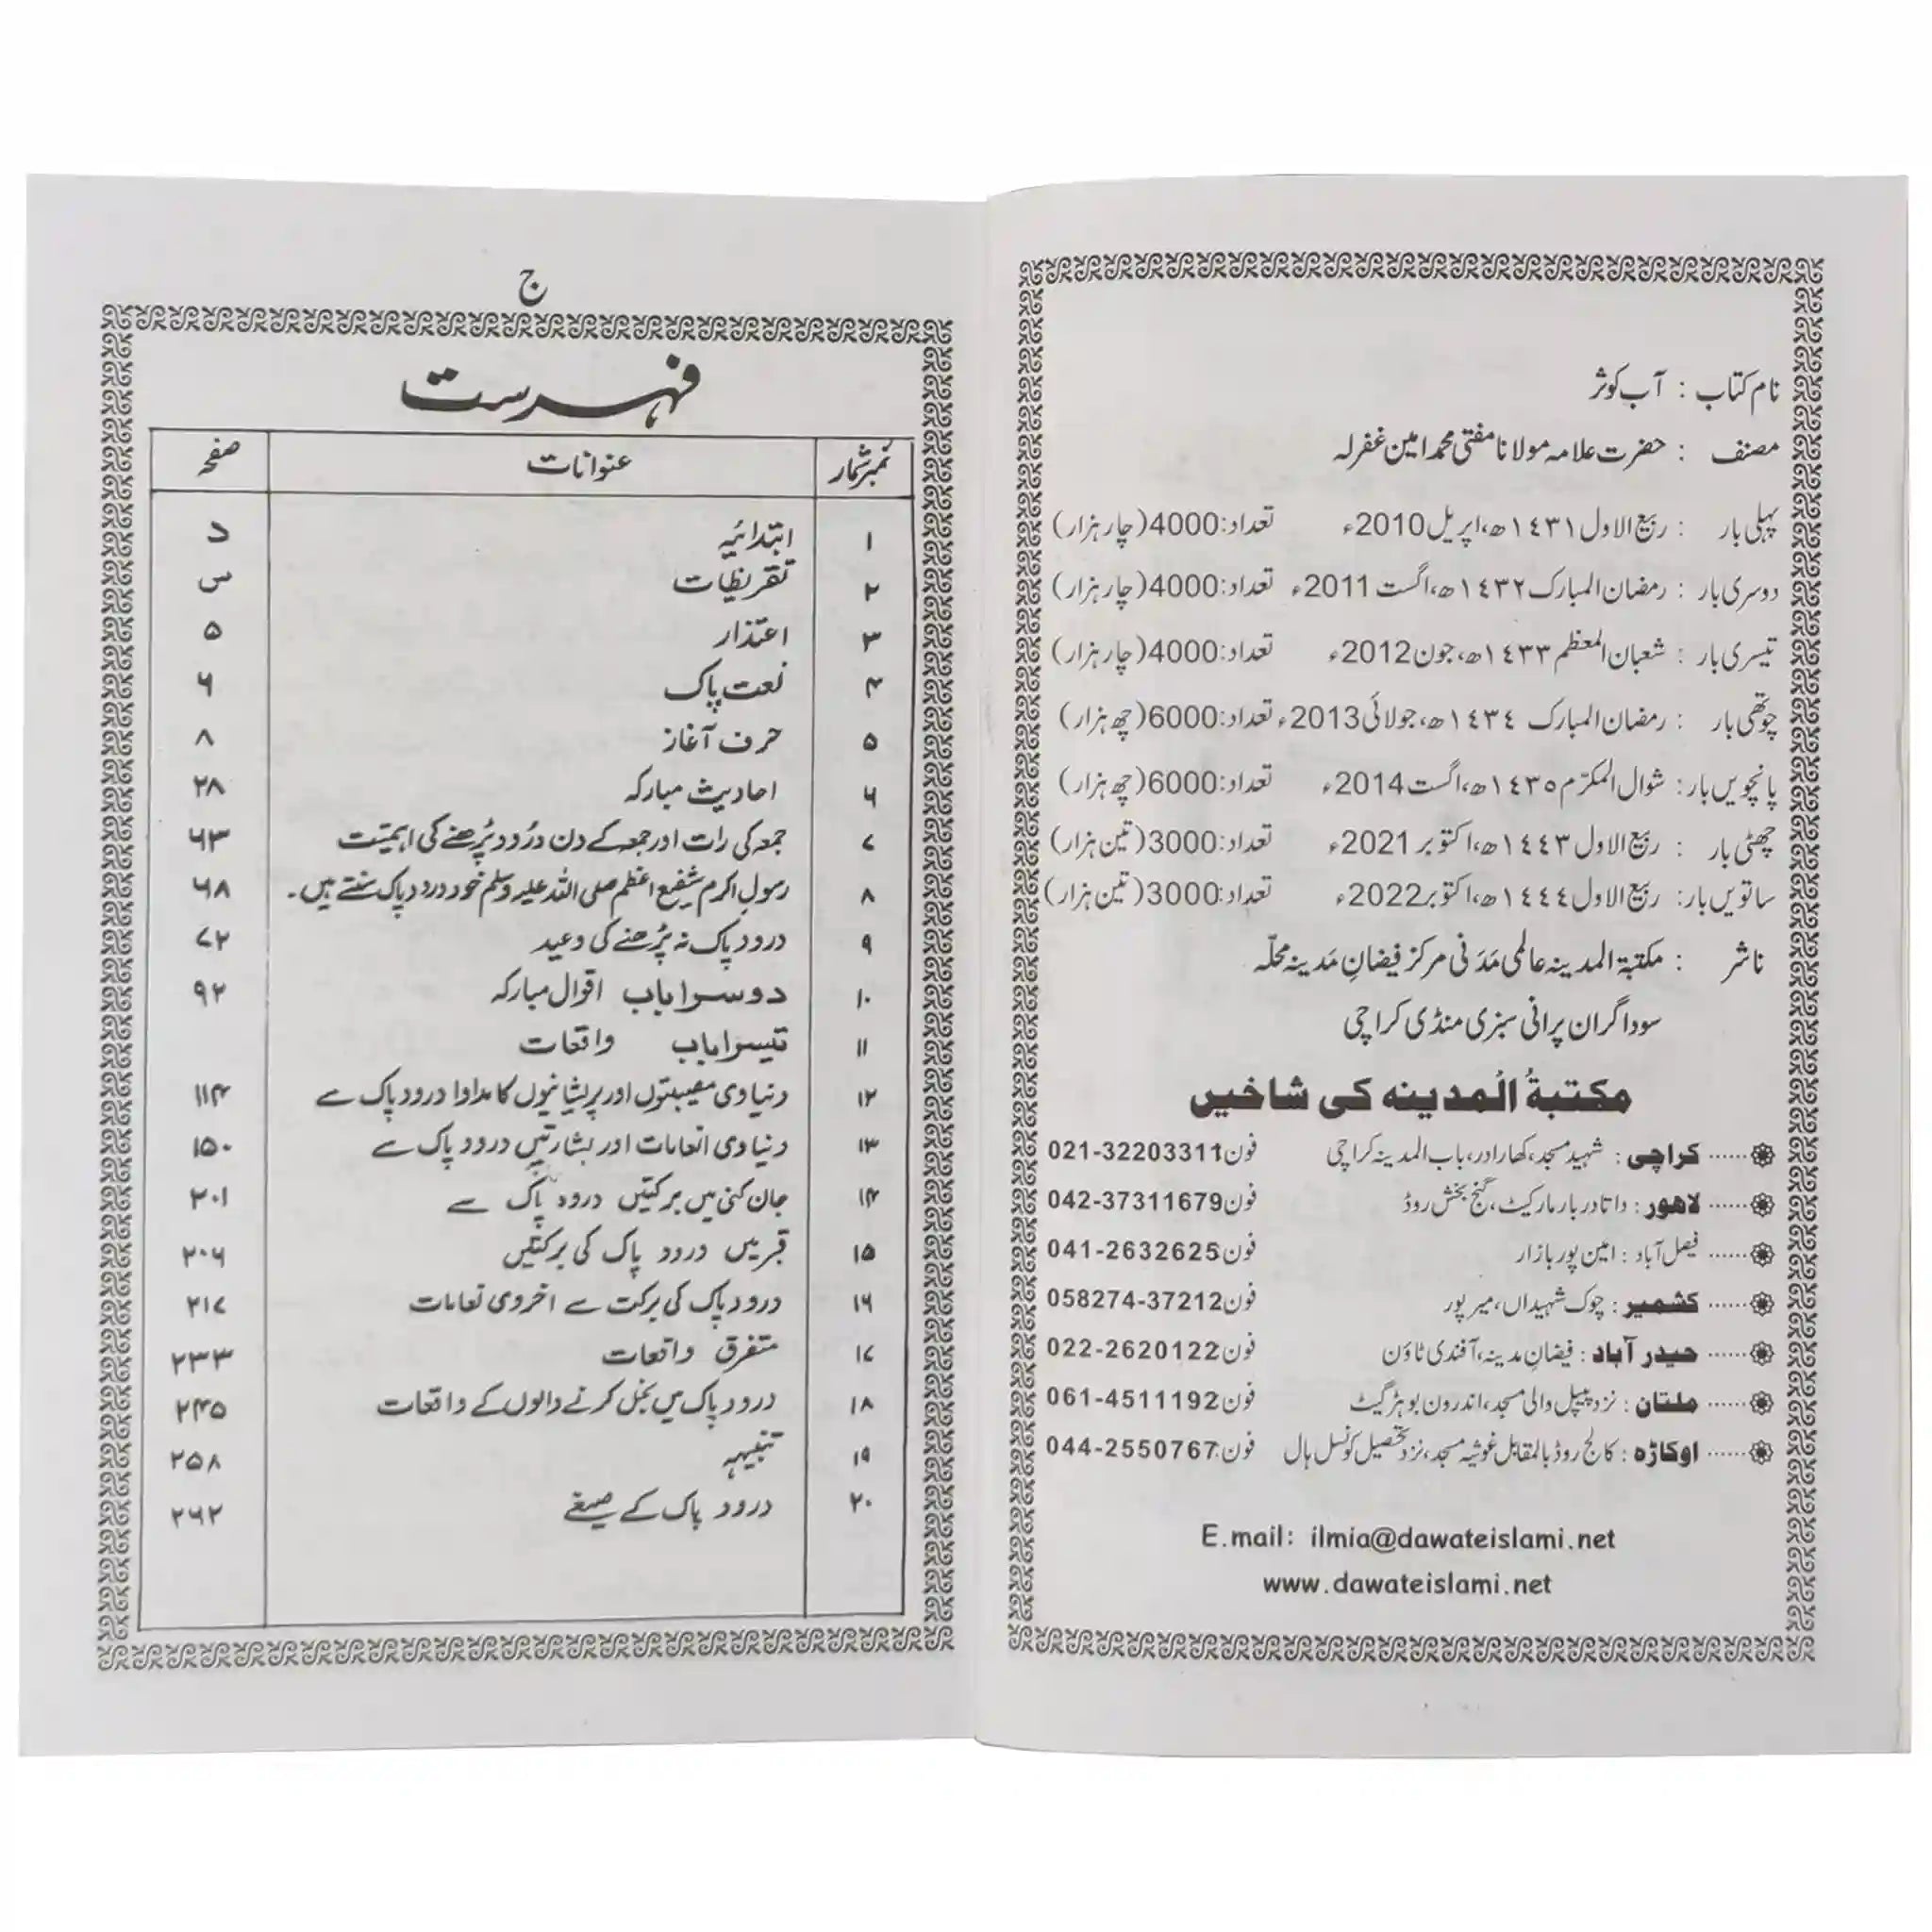 نام کتاب : آب کوثر
مصنف : حضرت علامہ مولانا مفتی محمد امین غفرلہ
پہلی بار : ربیع الاول ١٤٣١ھ، اپریل 2010ء تعداد: 4000 (چار ہزار)
دوسری بار : رمضان المبارک ١٤٣٢ھ، اگست 2011ء تعداد: 4000 (چار ہزار)
تیسری بار : شعبان المعظم ١٤٣٣ھ، جون 2012ء تعداد: 4000 (چار ہزار)
چوتھی بار : رمضان المبارک ١٤٣٤ھ، جولائی 2013ء تعداد: 6000 (چھ ہزار)
پانچویں بار : شوال المکرّم ١٤٣٥ھ، اگست 2014ء تعداد: 6000 (چھ ہزار)
چھٹی بار : ربیع الاول ١٤٤٣ھ، اکتوبر 2021ء تعداد: 3000 (تین ہزار)
ساتویں بار : ربیع الاول ١٤٤٤ھ، اکتوبر 2022ء تعداد: 3000 (تین ہزار)
ناشر : مکتبۃ المدینہ عالمی مَدَنی مرکز فیضانِ مَدینہ محلّہ
سوداگران پرانی سبزی منڈی کراچی
مکتبۃُ المدینہ کی شاخیں
...... کراچی : شہید مسجد، کھارادر، باب المدینہ کراچی فون: 021-32203311
...... لاھور : داتا دربار مارکیٹ، گنج بخش روڈ فون: 042-37311679
...... فیصل آباد : امین پور بازار فون: 041-2632625
...... کشمیر : چوک شہیداں، میرپور فون: 058274-37212
...... حیدر آباد : فیضانِ مدینہ، آفندی ٹاؤن فون: 022-2620122
...... ملتان : نزد پیپل والی مسجد، اندرون بوہڑ گیٹ فون: 061-4511192
...... اوکاڑہ : کالج روڈ بالمقابل غوثیہ مسجد، نزد تحصیل کونسل ہال فون: 044-2550767
E.mail: ilmia@dawateislami.net
www.dawateislami.net
ج
فہرست
نمبر شمار عنوانات صفحہ
۱ ابتدائیہ د
۲ تقریظات س
۳ اعتذار ۵
۴ نعت پاک ۶
۵ حرف آغاز ۸
۶ احادیث مبارکہ ۲۸
۷ جمعہ کی رات اور جمعہ کے دن درُود پڑھنے کی اہمیّت ۶۳
۸ رسول اکرم شفیع اعظم صلی اللہ علیہ وسلم خود درود پاک سنتے ہیں۔ ۶۸
۹ درود پاک نہ پڑھنے کی وعید ۷۲
۱۰ دوسرا باب اقوال مبارکہ ۹۲
۱۱ تیسرا باب واقعات
۱۲ دنیاوی مصیبتوں اور پریشانیوں کا مداوا درود پاک سے ۱۱۴
۱۳ دنیاوی انعامات اور بشارتیں درود پاک سے ۱۵۰
۱۴ جان کنی میں برکتیں درود پاک سے ۲۰۱
۱۵ قبر میں درود پاک کی برکتیں ۲۰۶
۱۶ درود پاک کی برکت سے اخروی نعامات ۲۱۷
۱۷ متفرق واقعات ۲۳۳
۱۸ درود پاک میں بخل کرنے والوں کے واقعات ۲۴۵
۱۹ تنبیہہ ۲۵۸
۲۰ درود پاک کے صیغے ۲۶۲